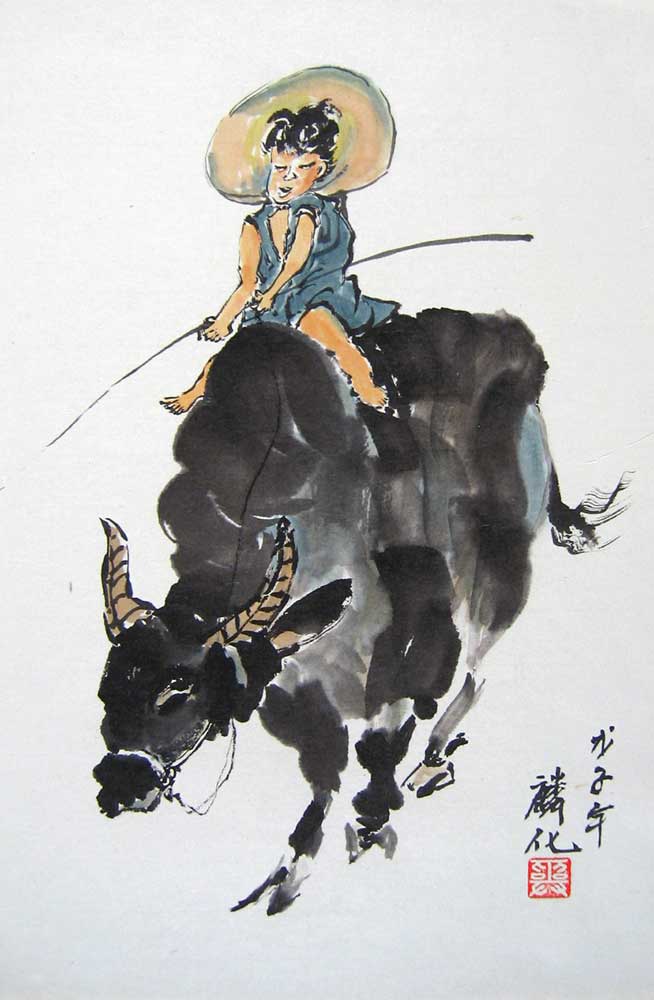 戊子年
麟化